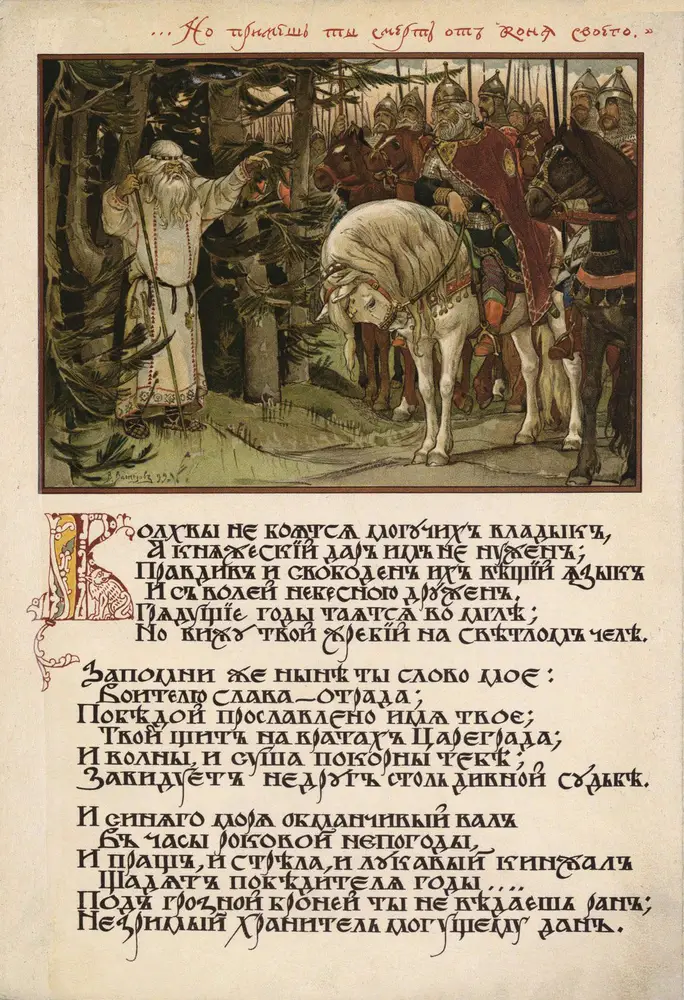 ... Но примешь ты смерть отъ коня своего."
Волхвы не боятся могучихъ владыкъ,
А княжескій даръ имъ не нуженъ;
Правдивъ и свободенъ ихъ вѣщій языкъ
И съ волей небесною друженъ.
Грядущіе годы таятся во мглѣ;
Но вижу твой жребій на свѣтломъ челѣ.
Запомни же нынѣ ты слово мое:
Воителю слава—отрада;
Побѣдой прославлено имя твое;
Твой щитъ на вратахъ Цареграда;
И волны, и суша покорны тебѣ;
Завидуетъ недругъ столь дивной судьбѣ.
И синяго моря обманчивый валъ
Въ часы роковой непогоды,
И пращъ, и стрѣла, и лукавый кинжалъ
Щадятъ побѣдителя годы....
Подъ грозной броней ты не вѣдаешь ранъ;
Незримый хранитель могущему данъ.